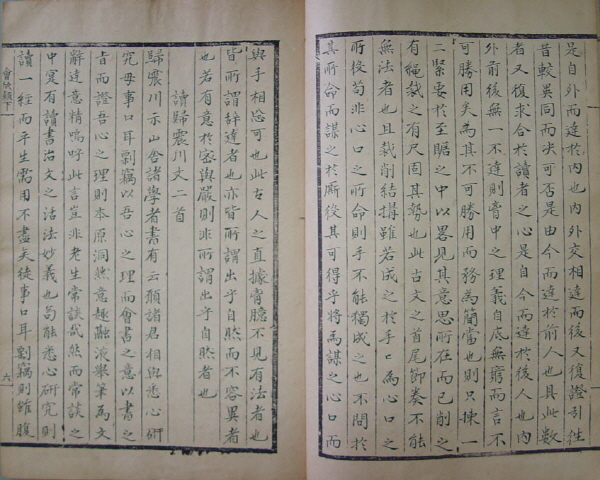 是自外而達於内也内外交相達而後又復證引往
昔較異同而決可否是由今而達於前人也具此數
者又復求合於讀者之心是自今而達於後人也内
外前後無一不達則胷中之理義自底無窮而言不
可勝用矣為其不可勝用而務為簡當也則只揀一
二緊要於至賾之中以畧見其意思所在而已削之
有繩裁之有尺固其勢也此古文之首尾節奏不能
無法者也且裁削結搆雖若成之於手口為心口之
所役苟非心口之所命則手不能獨成之也不問於
其所命而謀之於厮役其可得乎將為謀之心口而
與手相忘可也此古人之直據胷臆不見有法者也
皆所謂辭達者也亦皆所謂出乎自然而不容異者
也若有意於密與嚴則非所謂出乎自然者也
讀歸震川文二首
歸震川示山舍諸學者書有云願諸君相與悉心研
究毋事口耳剽竊以吾心之理而會書之意以書之
旨而證吾心之理則本原洞然意趣融液舉筆為文
辭達意精嗚呼此言豈非老生常談哉然而常談之
中寔有讀書治文之活法妙義也苟能悉心研究則
讀一經而平生需用不盡矣徒事口耳剽竊則雖腹
六